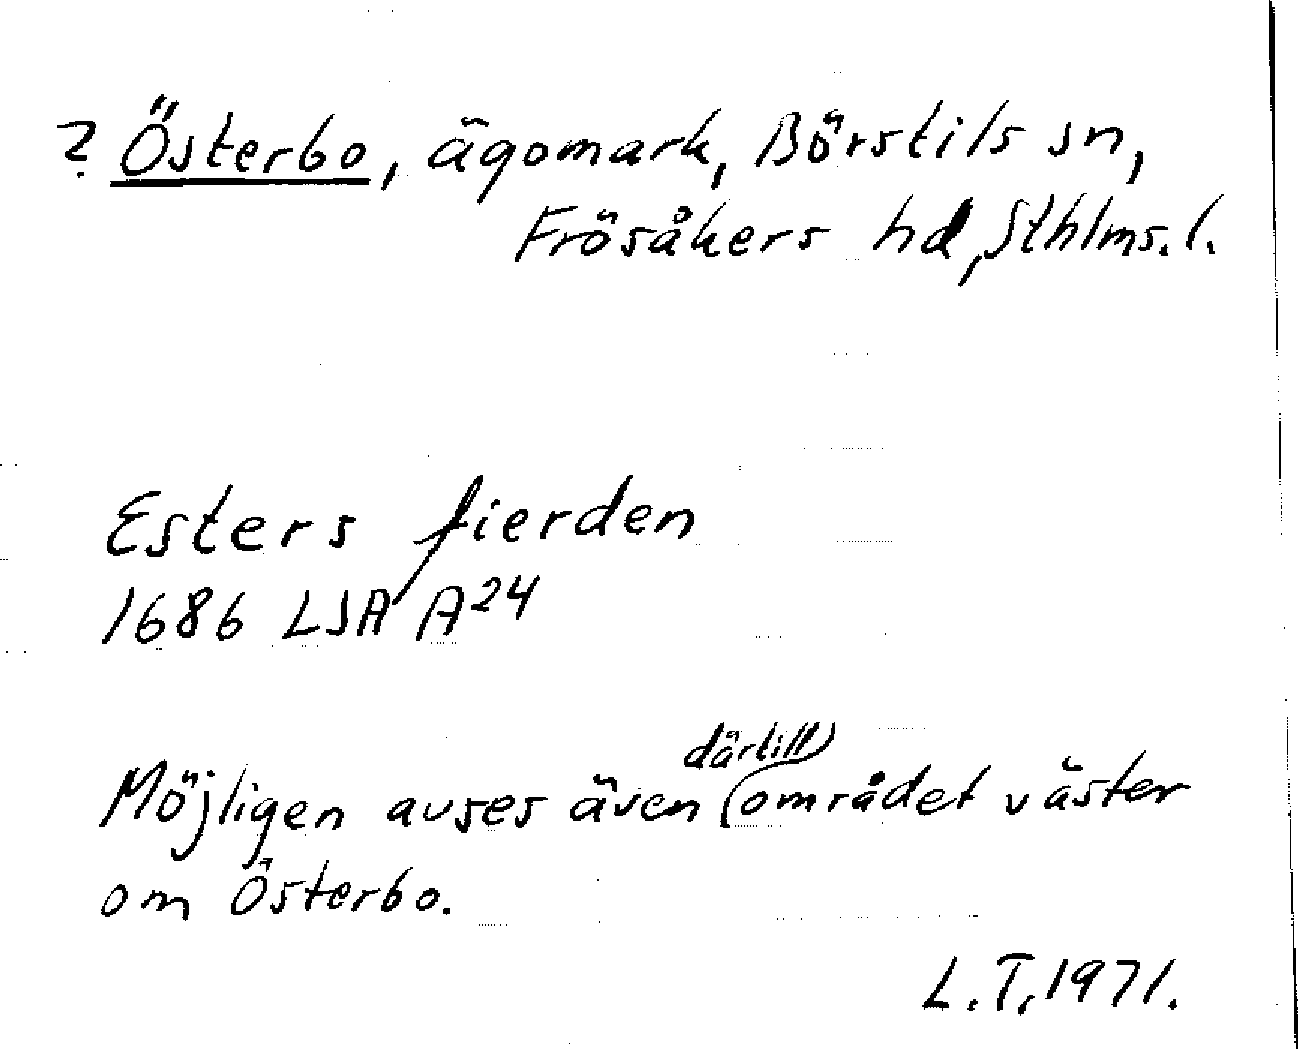 ? Österbo, ägomark, Börstils sn,
Frösåkers hd, Sthlms. l.
Esters fierden
1686 LSA A24
Möjligen avses även därtill området väster
om Österbo.
L. T. 1971.